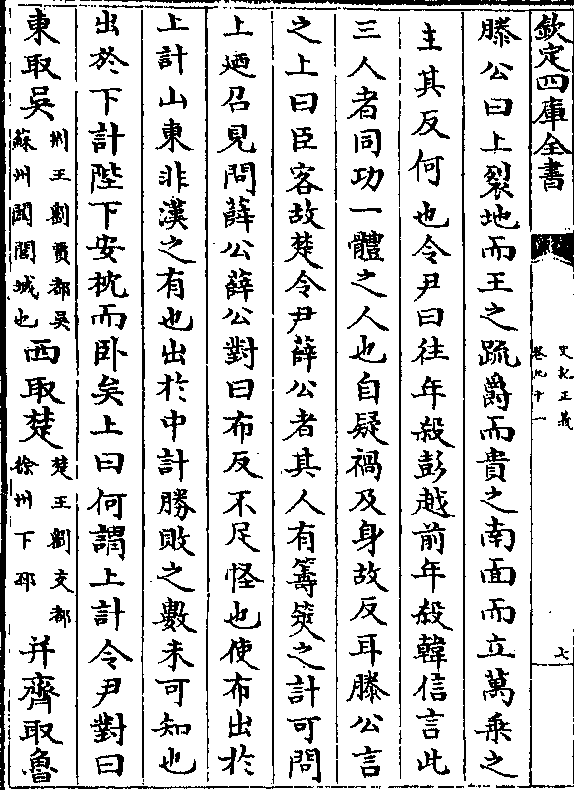 欽定四庫全書
史記正義
卷九十一
七
滕公曰上裂地而王之疏爵而貴之南面而立萬乘之
主其反何也令尹曰往年殺彭越前年殺韓信言此
三人者同功一體之人也自疑禍及身故反耳滕公言
之上曰臣客故楚令尹薛公者其人有籌筴之計可問
上廼召見問薛公薛公對曰布反不足怪也使布出於
上計山東非漢之有也出於中計勝敗之數未可知也
出於下計陛下安枕而卧矣上曰何謂上計令尹對曰
東取吳荆王劉賈都吳蘇州闔閭城也西取楚楚王劉交都徐州下邳并齊取魯